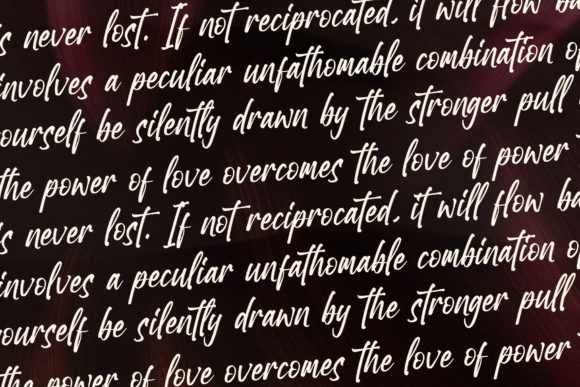 is never lost. If not reciprocated, it will flow ba
involves a peculiar unfathomable combination of
ourself be silently drawn by the stronger pull
the power of love overcomes the love of power
is never lost. If not reciprocated, it will flow ba
involves a peculiar unfathomable combination of
ourself be silently drawn by the stronger pull
the power of love overcomes the love of power